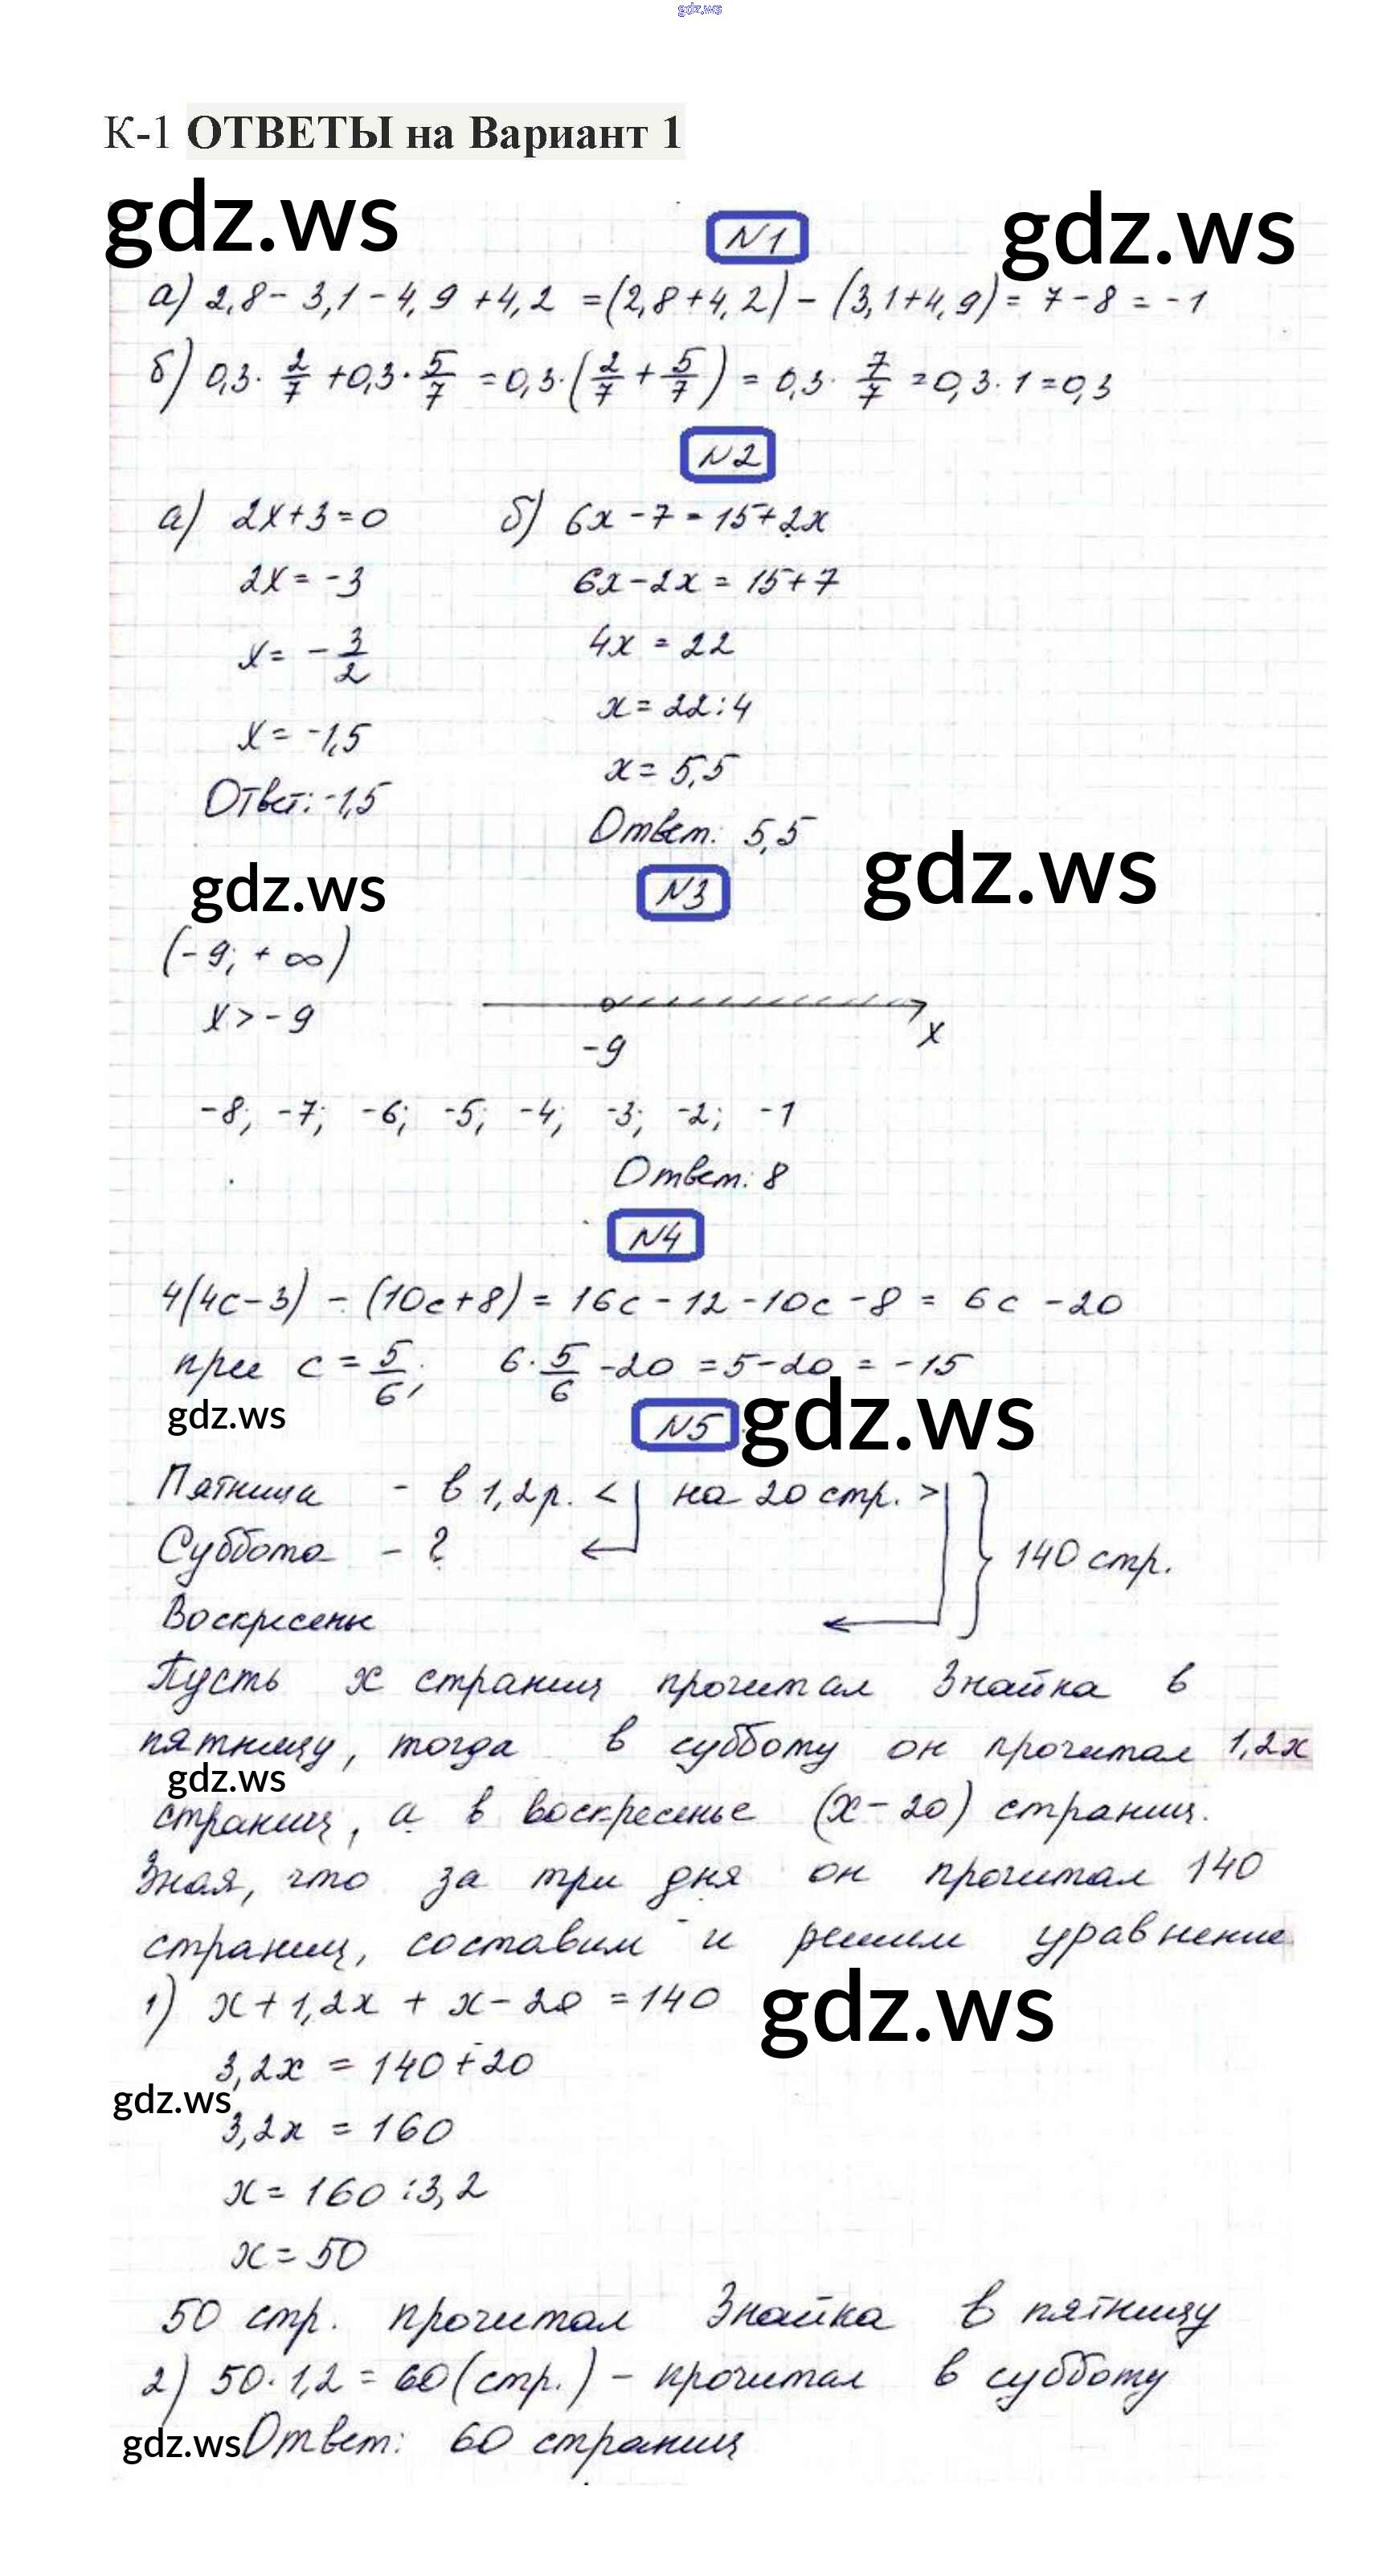 gdz.ws
К-1 ОТВЕТЫ на Вариант 1
gdz.ws
N1
gdz.ws
а) 2,8 - 3,1 - 4,9 + 4,2 = (2,8 + 4,2) - (3,1 + 4,9) = 7 - 8 = -1
б) 0,3 · 2/7 + 0,3 · 5/7 = 0,3 · (2/7 + 5/7) = 0,3 · 7/7 = 0,3 · 1 = 0,3
N2
а) 2x + 3 = 0 б) 6x - 7 = 15 + 2x
2x = -3 6x - 2x = 15 + 7
x = - 3/2 4x = 22
x = -1,5 x = 22 : 4
Ответ: -1,5 x = 5,5
Ответ: 5,5
gdz.ws
N3
gdz.ws
(-9; +∞)
x > -9
-9 x
-8; -7; -6; -5; -4; -3; -2; -1
Ответ: 8
N4
4(4c - 3) - (10c + 8) = 16c - 12 - 10c - 8 = 6c - 20
при c = 5/6; 6 · 5/6 - 20 = 5 - 20 = -15
gdz.ws
N5
gdz.ws
Пятница - в 1,2 р. < на 20 стр. >
Суббота - ? 140 стр.
Воскресенье
Пусть x страниц прочитал Знайка в
пятницу, тогда в субботу он прочитал 1,2x
gdz.ws
страниц, а в воскресенье (x - 20) страниц.
Зная, что за три дня он прочитал 140
страниц, составим и решим уравнение
1) x + 1,2x + x - 20 = 140
gdz.ws
3,2x = 140 + 20
gdz.ws
3,2x = 160
x = 160 : 3,2
x = 50
50 стр. прочитал Знайка в пятницу
2) 50 · 1,2 = 60 (стр.) - прочитал в субботу
gdz.ws
Ответ: 60 страниц